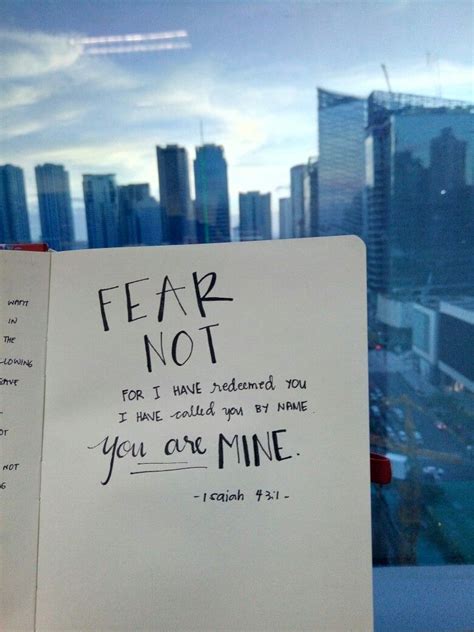 WANT
IN
THE
NOT
FEAR
NOT
FOR I HAVE redeemed YOU
I HAVE called you BY NAME.
you are MINE.
- Isaiah 43:1 -